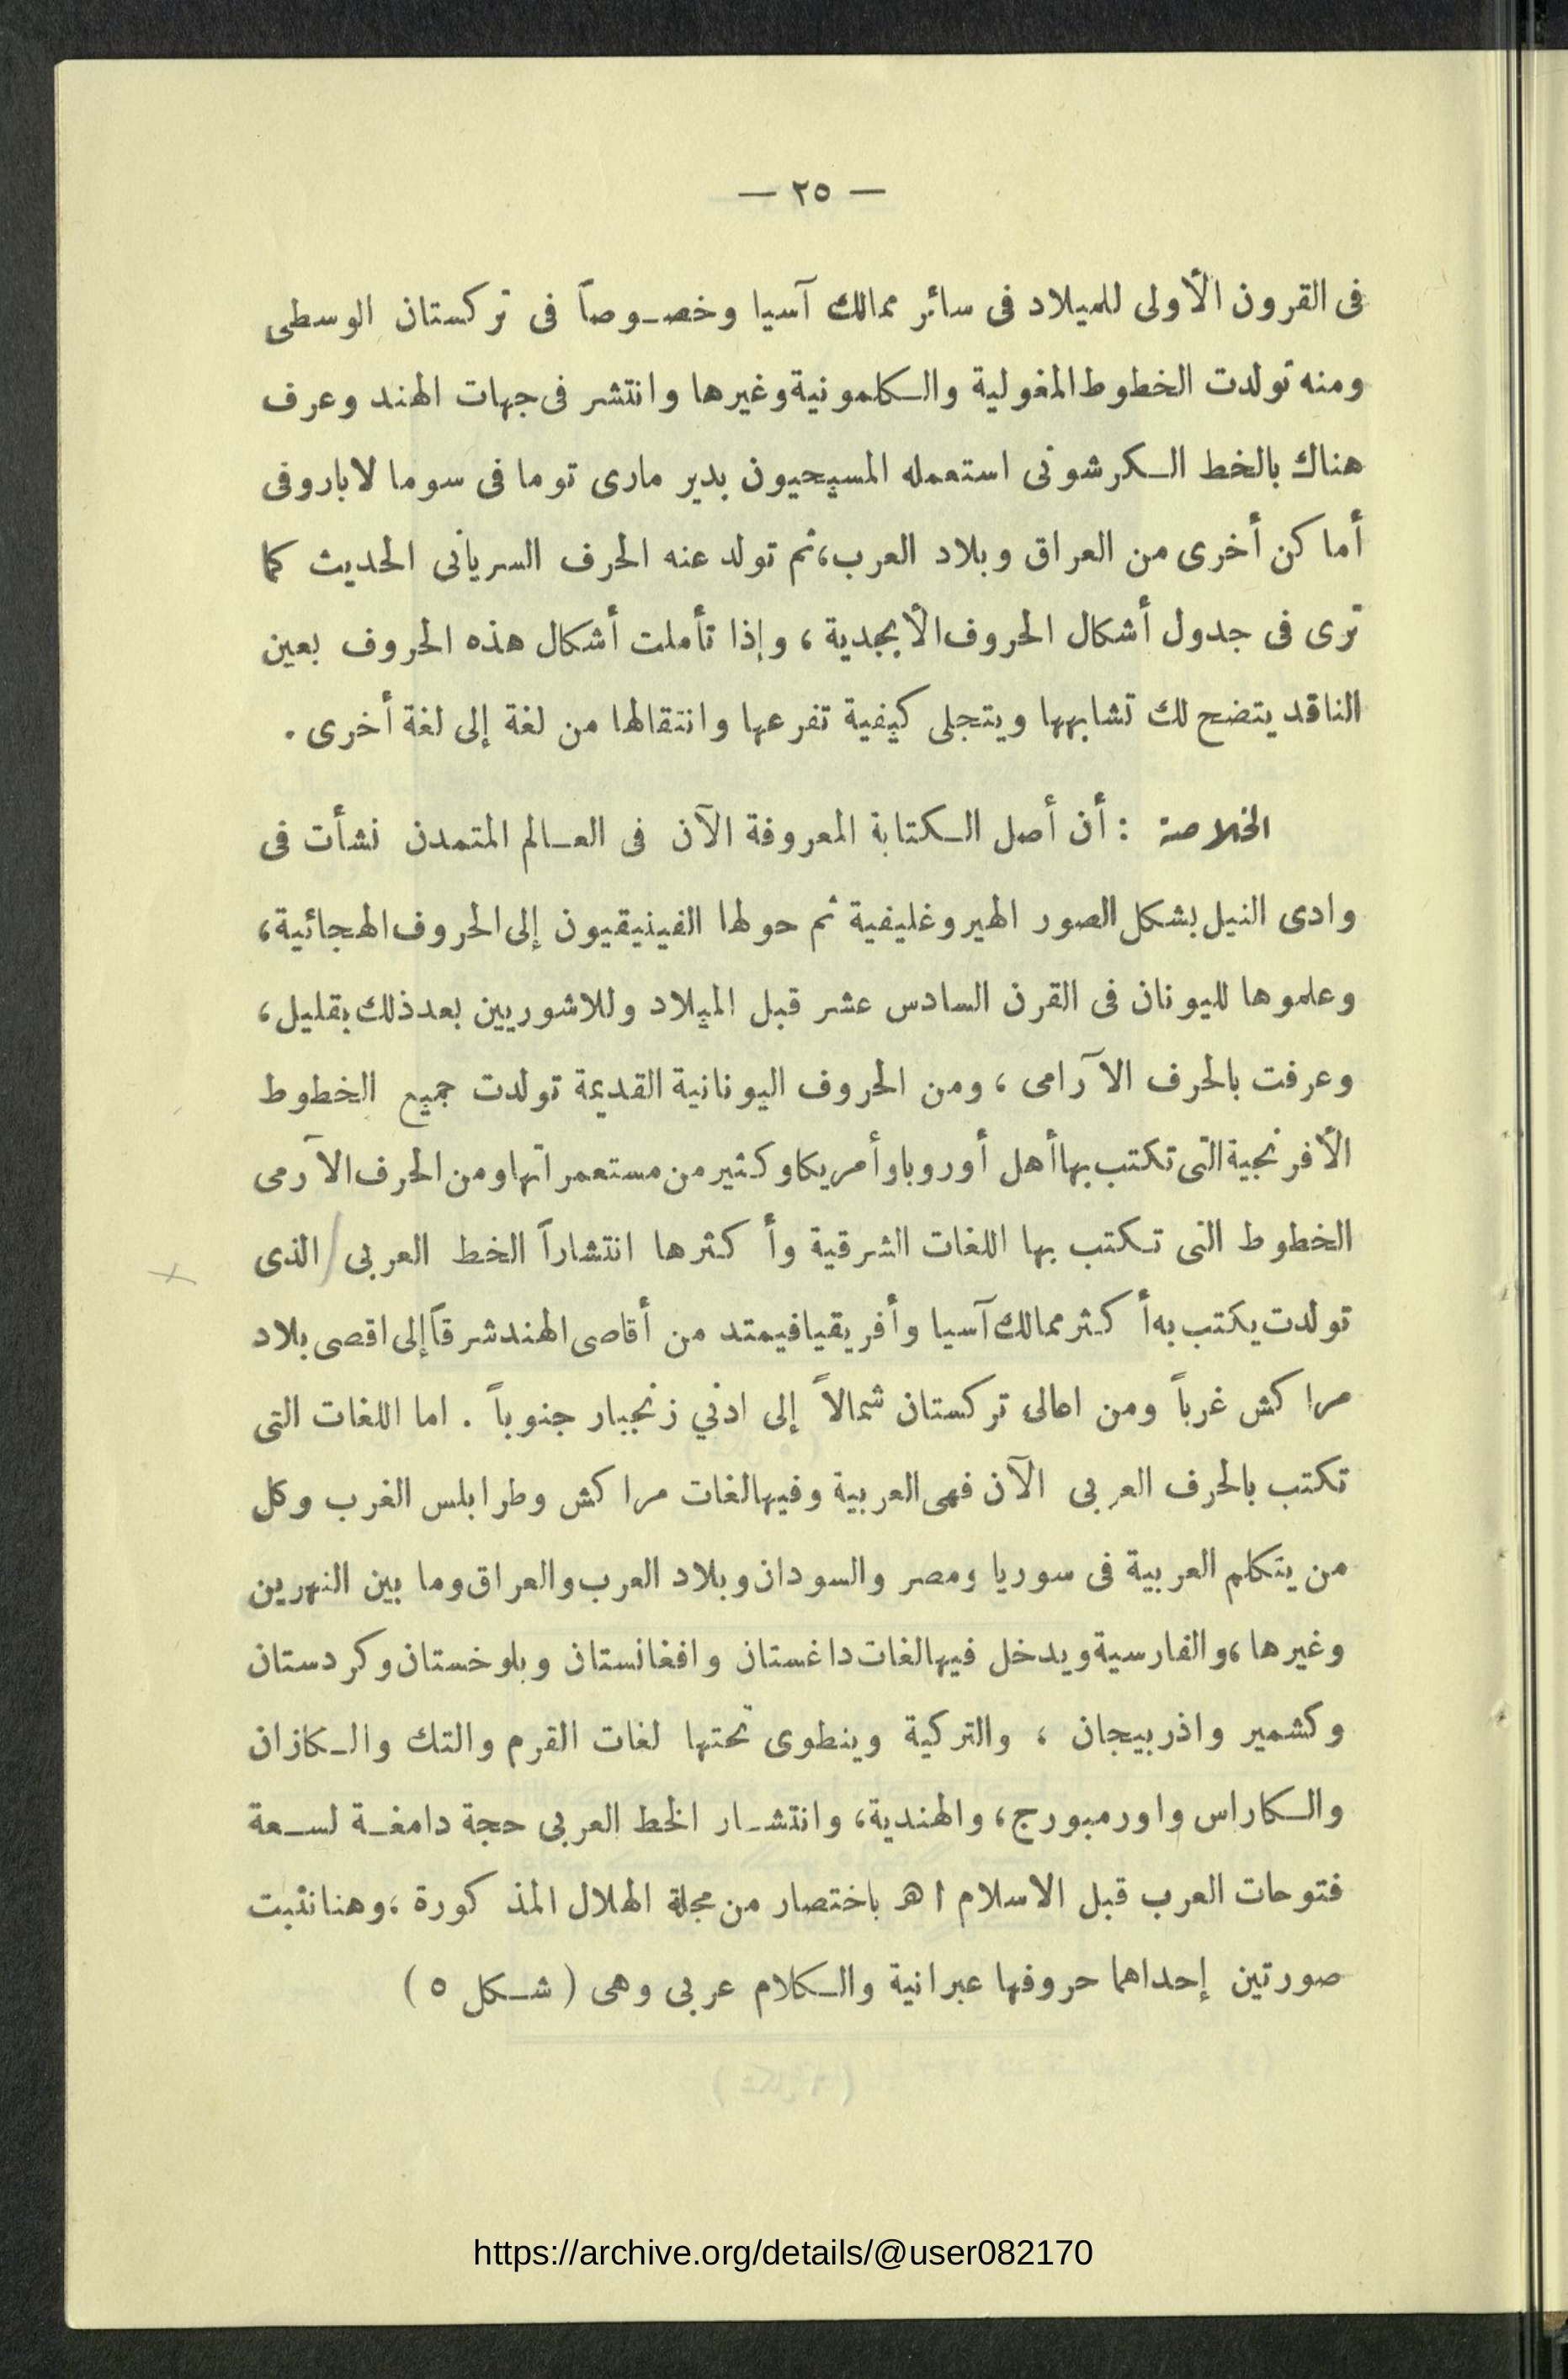 — ٢٥ —
فى القرون الأولى للميلاد فى سائر ممالك آسيا وخصوصاً فى تركستان الوسطى
ومنه تولدت الخطوط المغولية والكلمونية وغيرها وانتشر فى جهات الهند وعرف
هناك بالخط الكرشونى استعمله المسيحيون بدير مارى توما فى سوما لاباروفى
أماكن أخرى من العراق وبلاد العرب، ثم تولد عنه الحرف السريانى الحديث كما
ترى فى جدول أشكال الحروف الأبجدية ، وإذا تأملت أشكال هذه الحروف بعين
الناقد يتضح لك تشابهها ويتجلى كيفية تفرعها وانتقالها من لغة إلى لغة أخرى .
الخلاصة : أن أصل الكتابة المعروفة الآن فى العالم المتمدن نشأت فى
وادى النيل بشكل الصور الهيروغليفية ثم حولها الفينيقيون إلى الحروف الهجائية،
وعلموها لليونان فى القرن السادس عشر قبل الميلاد وللاشوريين بعد ذلك بقليل،
وعرفت بالحرف الآرامى ، ومن الحروف اليونانية القديمة تولدت جميع الخطوط
الأفرنجية التى تكتب بها أهل أوروبا وأمريكا وكثير من مستعمراتها ومن الحرف الآرمى
الخطوط التى تكتب بها اللغات الشرقية وأكثرها انتشاراً الخط العربى / الذى
تولدت يكتب به أكثر ممالك آسيا وأفريقيا فيمتد من أقاصى الهند شرقاً إلى اقصى بلاد
مراكش غرباً ومن اعالى تركستان شمالاً إلى ادني زنجبار جنوباً . اما اللغات التى
تكتب بالحرف العربى الآن فهى العربية وفيها لغات مراكش وطرابلس الغرب وكل
من يتكلم العربية فى سوريا ومصر والسودان وبلاد العرب والعراق وما بين النهرين
وغيرها، والفارسية ويدخل فيها لغات داغستان وافغانستان وبلوخستان وكردستان
وكشمير واذربيجان ، والتركية وينطوى تحتها لغات القرم والتك والكازان
والكاراس واورمبورج، والهندية، وانتشار الخط العربى حجة دامغة لسعة
فتوحات العرب قبل الاسلام ا هـ باختصار من مجلة الهلال المذكورة ، وهنا نثبت
صورتين إحداهما حروفها عبرانية والكلام عربى وهى ( شكل ٥ )
https://archive.org/details/@user082170